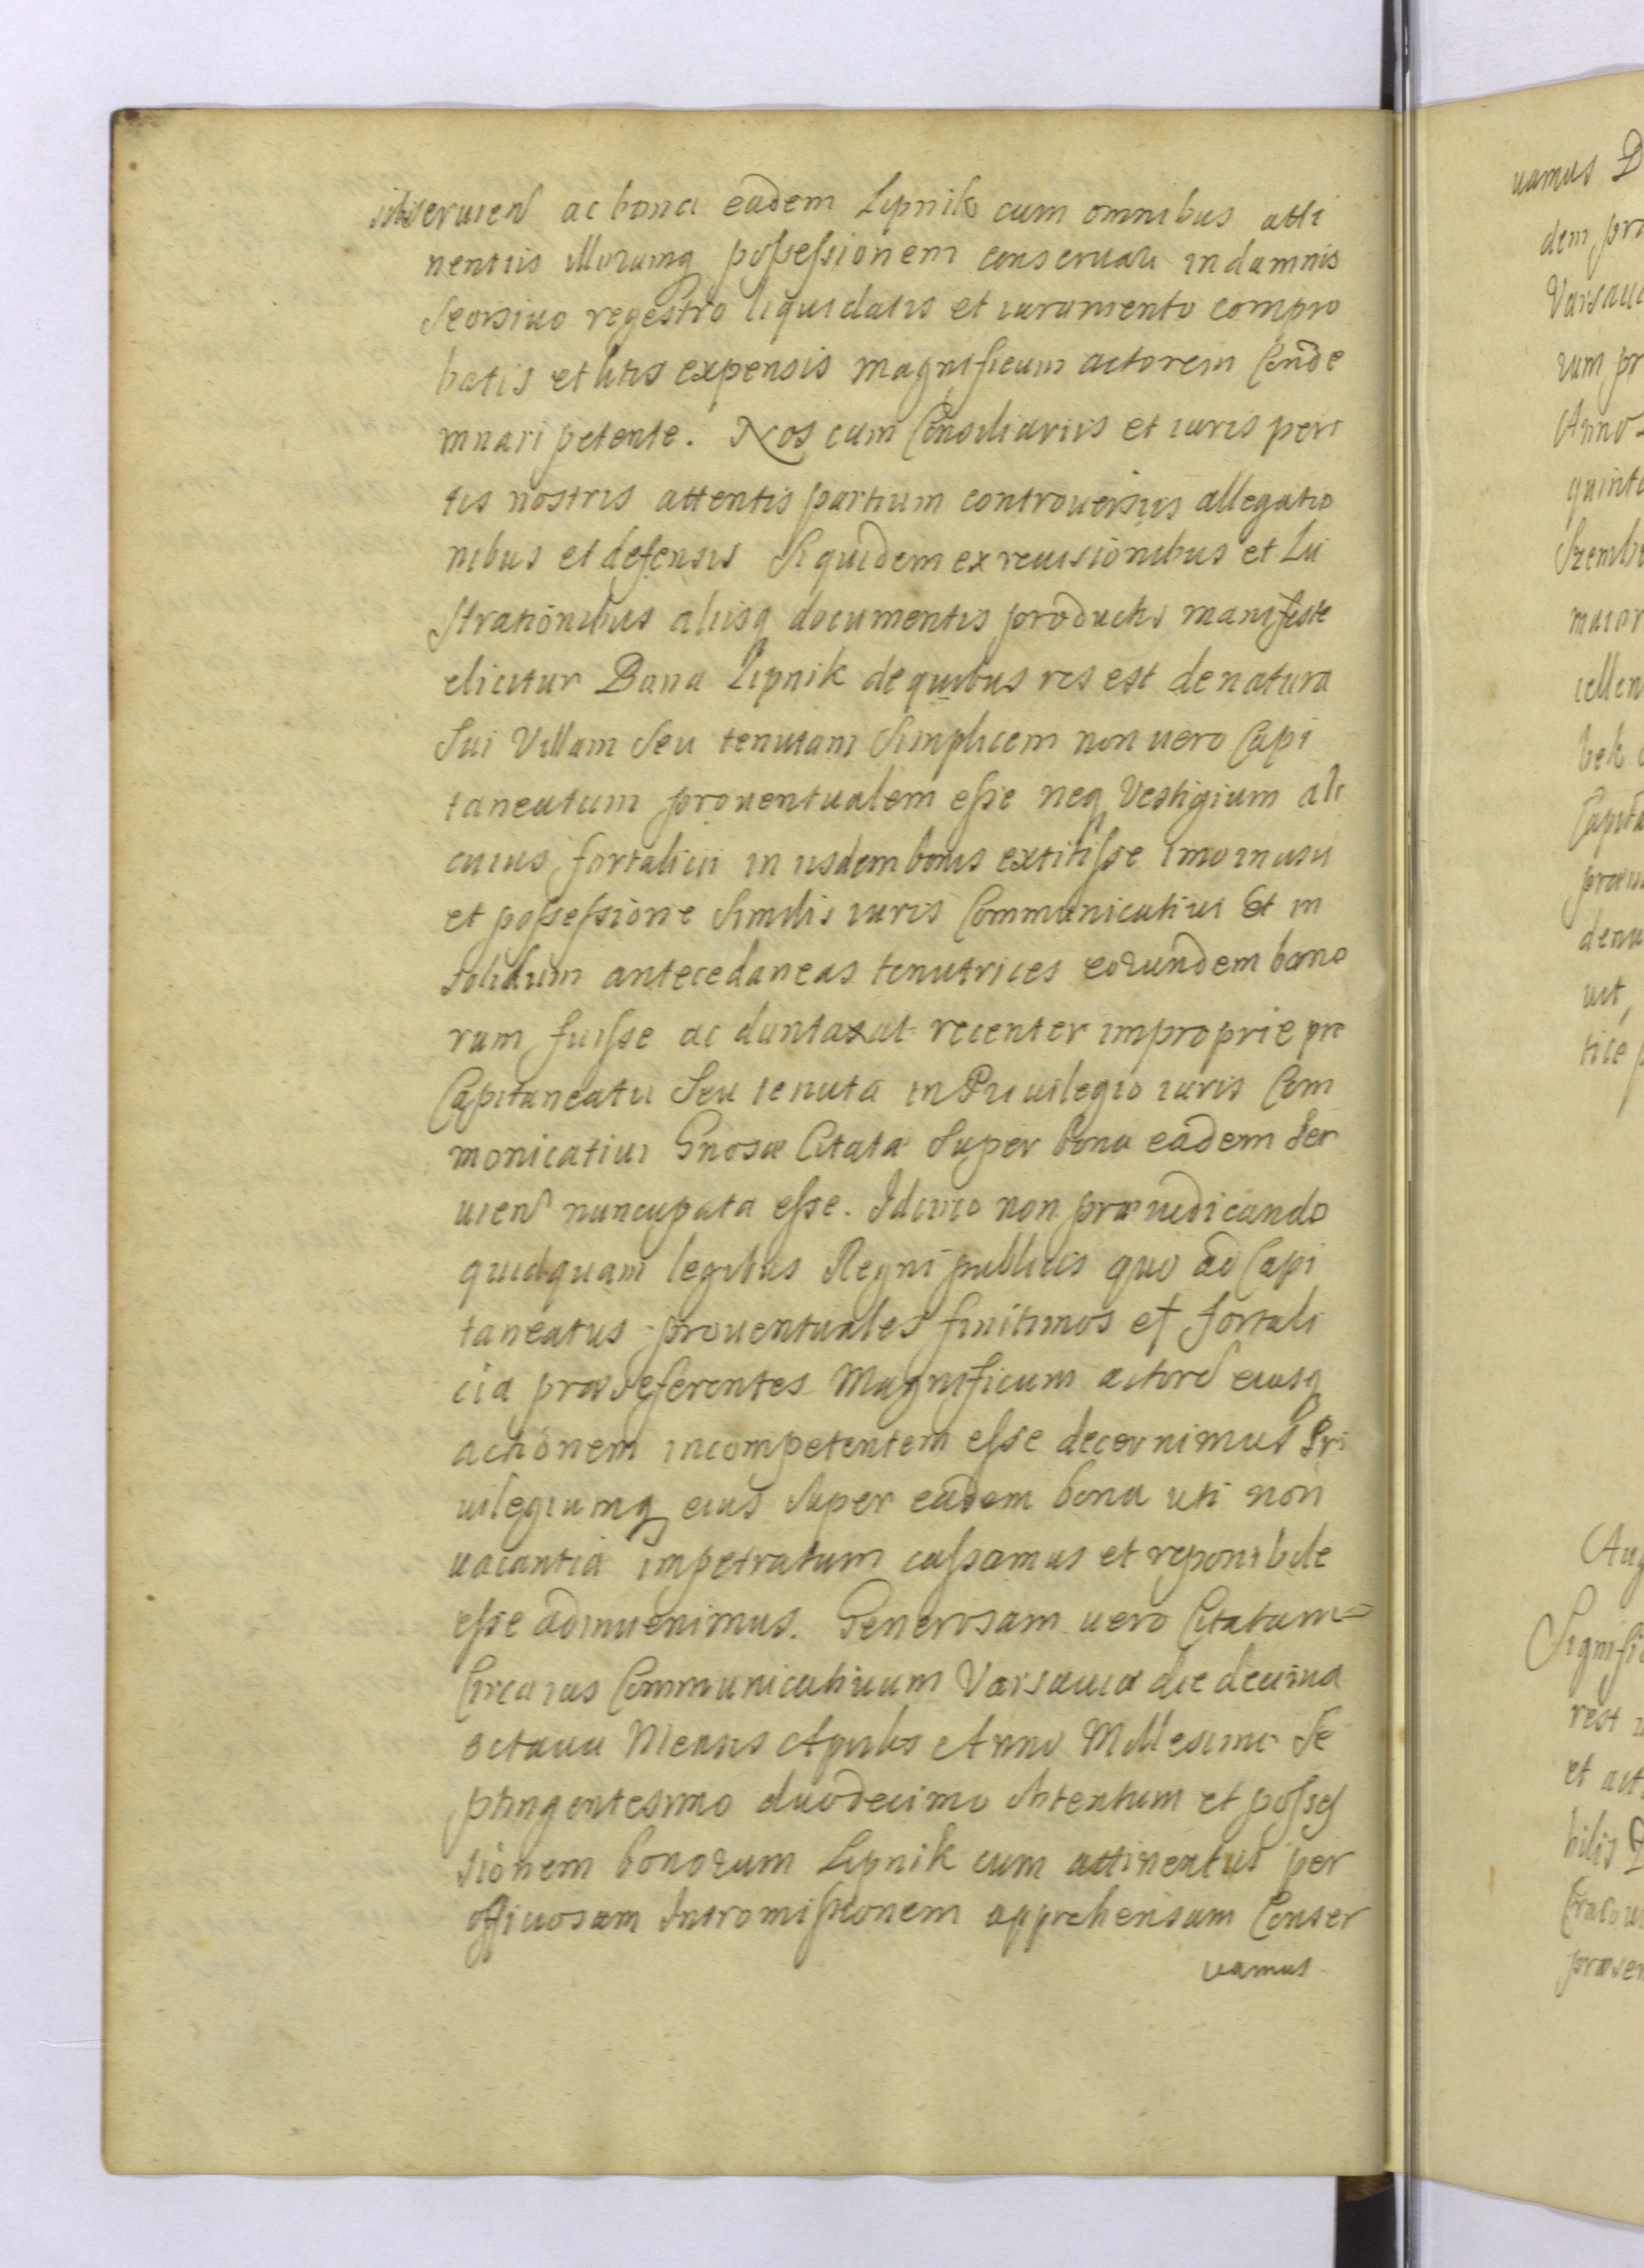 sibi seruien ac bona eadem Lipnik cum omnibus atti
nentiis illorumq possessionem conseruari in damnis
Seorsiuo regestro liquidatis et iuramento compro
batis et litis expensis magnificum actorem Conde
mnari petente. Nos cum Consiliariis et iuris peri
tis nostris attentis partium controuersiis allegatio
nibus et defensis Siquidem ex reuisionibus et Lu
strationibus aliisq documentis productis manifeste
elicitur Bona Lipnik de quibus res est de natura
Sui Villam Seu tenutam Simplicem non uero Capi
taneatum prouentualem esse neq Vestigium ali
cuius fortalicii in iisdem bonis extitisse imo in usu
et possessione Similis iuris Communicatiui Et in
Solidum antecedaneas tenutrices eorundem bono
rum fuisse ac duntaxat recenter improprie pro
Capitaneatu Seu tenuta in Priuilegio iuris Com
monicatiui Gnosæ Citatæ Super bona eadem Ser
uien nuncupata esse. Idcirco non præiudicando
quidquam legibus Regni publicis quo ad Capi
taneatus prouentuales finitimos et fortali
cia præseferentes Magnificum actore eiusq
actionem incompetentem esse decernimus Pri
uilegiumq eius Super eadem bona uti non
uacantia impetratum cassamus et reponibile
esse adinuenimus. Generosam uero Citatam
Circa ius Communicatiuum Varsauiæ die decima
octaua Mensis Aprilis Anno Millesimo Se
ptingentesimo duodecimo obtentum et posses
sionem bonorum Lipnik cum attinentiis per
officiosam Intromissionem apprehensam Conser
uamus